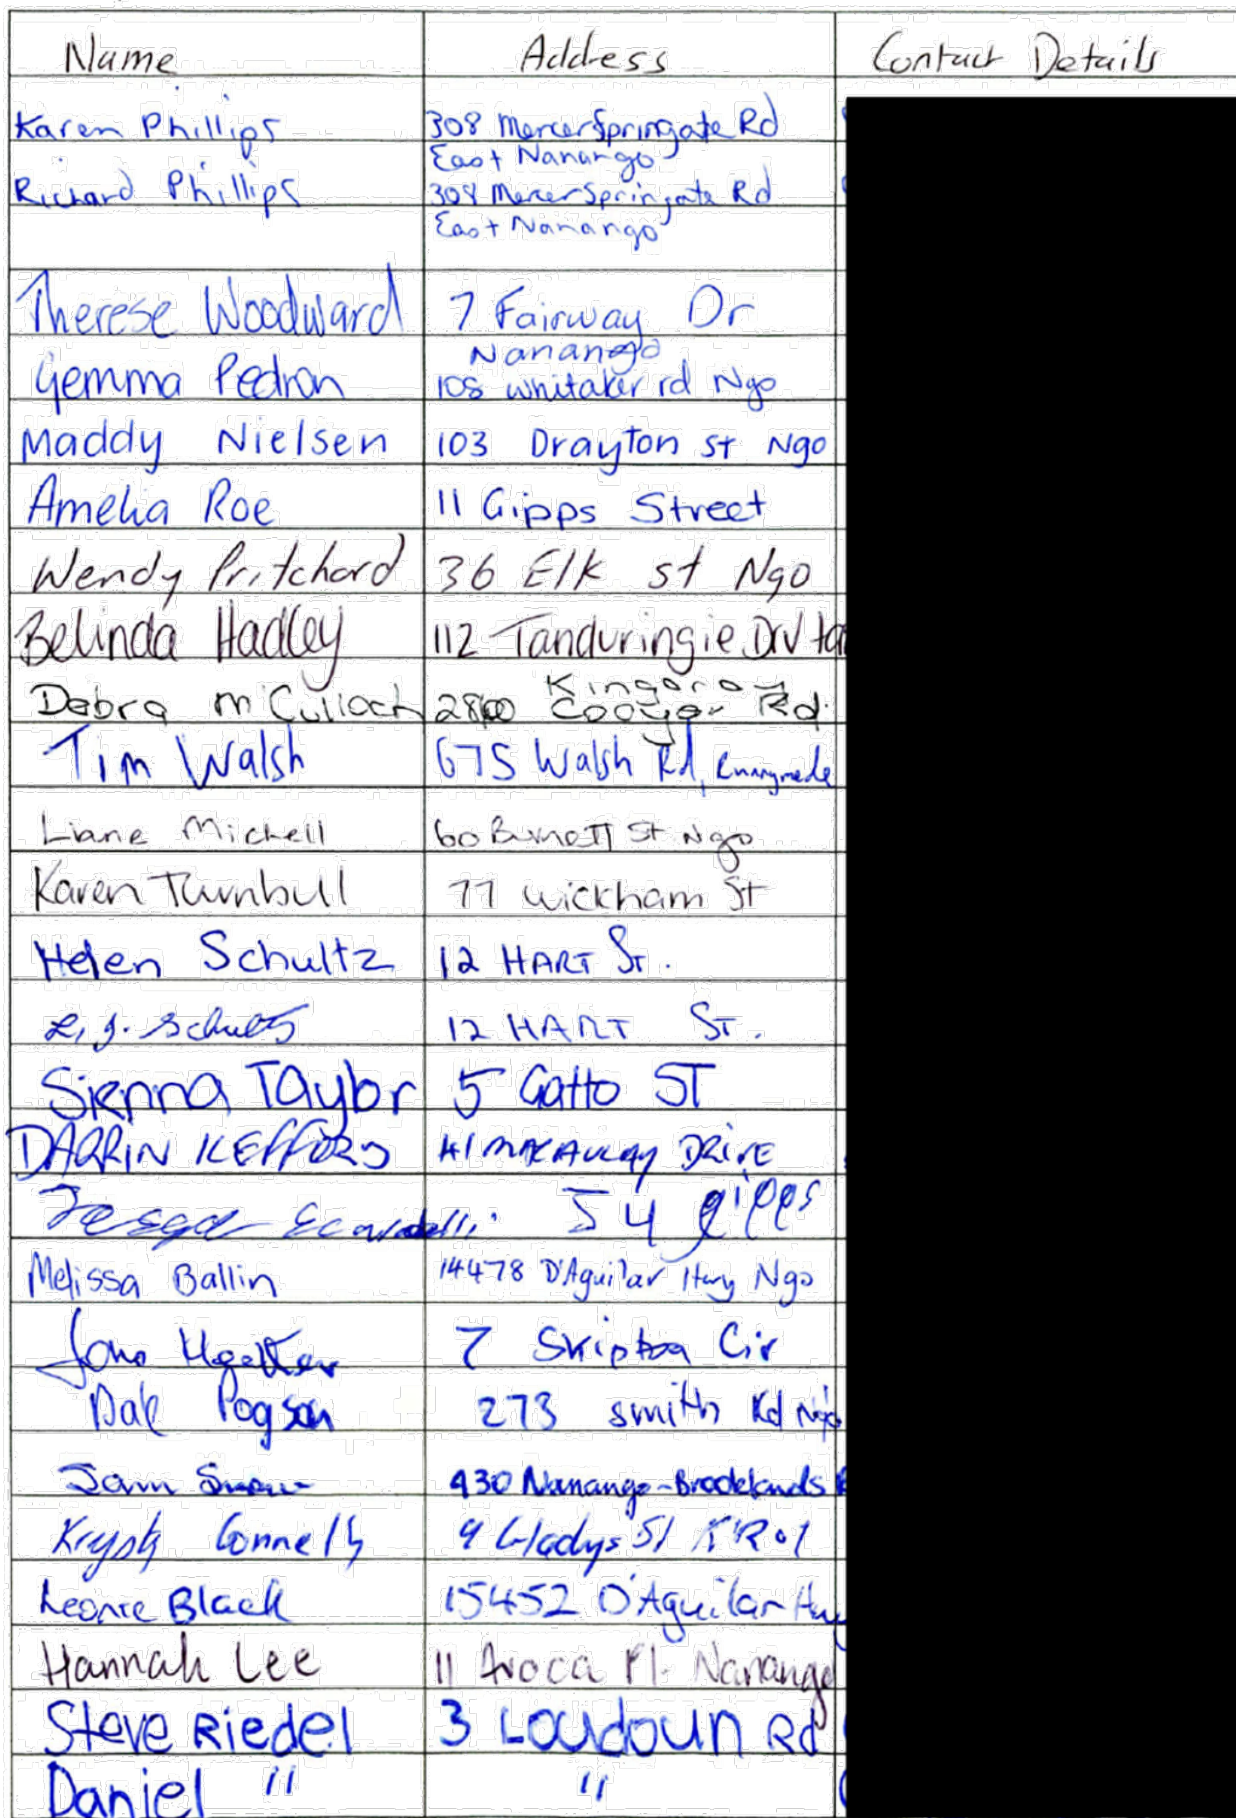 Name Address Contact Details
Karen Phillips 308 Mercer Springate Rd
East Nanango
Richard Phillips 308 Mercer Springate Rd
East Nanango
Therese Woodward 7 Fairway Dr
Nanango
Gemma Pedron 108 Whitaker rd Ngo
Maddy Nielsen 103 Drayton st Ngo
Amelia Roe 11 Gipps Street
Wendy Pritchard 36 Elk st Ngo
Belinda Hadley 112 Tanduringie Drv
Kingaroy
Debra McCulloch Cooyar Rd.
Tim Walsh 675 Walsh Rd, Runnymede
Liane Michell 60 Burnett St Ngo
Karen Turnbull 77 Wickham St
Helen Schultz 12 HART ST.
L.J. Schultz 12 HART ST.
Sienna Taylor 5 Gatto ST
DARRIN KEFFORD 41 MACAULAY DRIVE
54 gipps
Melissa Ballin 14478 D'Aguilar Hwy Ngo
7 Skipton Cir
Dale Pogson 273 smith Rd Ngo
Sam 430 Nanango-Brooklands
Connelly 9 Gladys St K'Roy
Leonie Black 15452 D'Aguilar Hwy
Hannah Lee 11 Avoca Pl. Nanango
Steve Riedel 3 Loudoun Rd
Daniel " "